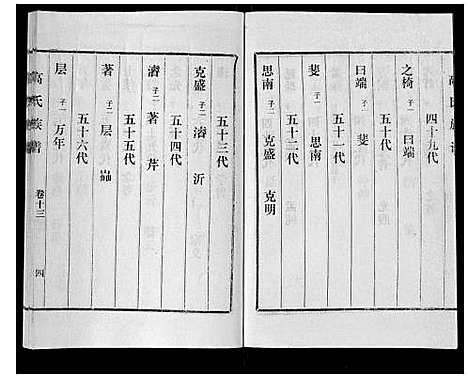 高氏族谱
四十九代
之椅 子一 曰端
五十代
曰端 子一 斐
五十一代
斐 子一 思南
五十二代
思南 子二 克盛 克明
五十三代
克盛 子二 濬 沂
五十四代
濬 子二 著 芹
五十五代
著 子二 层 巋
五十六代
层 子一 万年
高氏族谱 卷十三 四